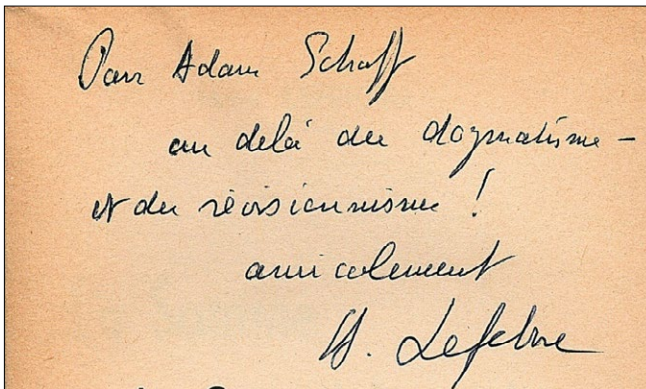 Pour Adam Schaff
au delà du dogmatisme -
et du révisionnisme !
amicalement
H. Lefebvre